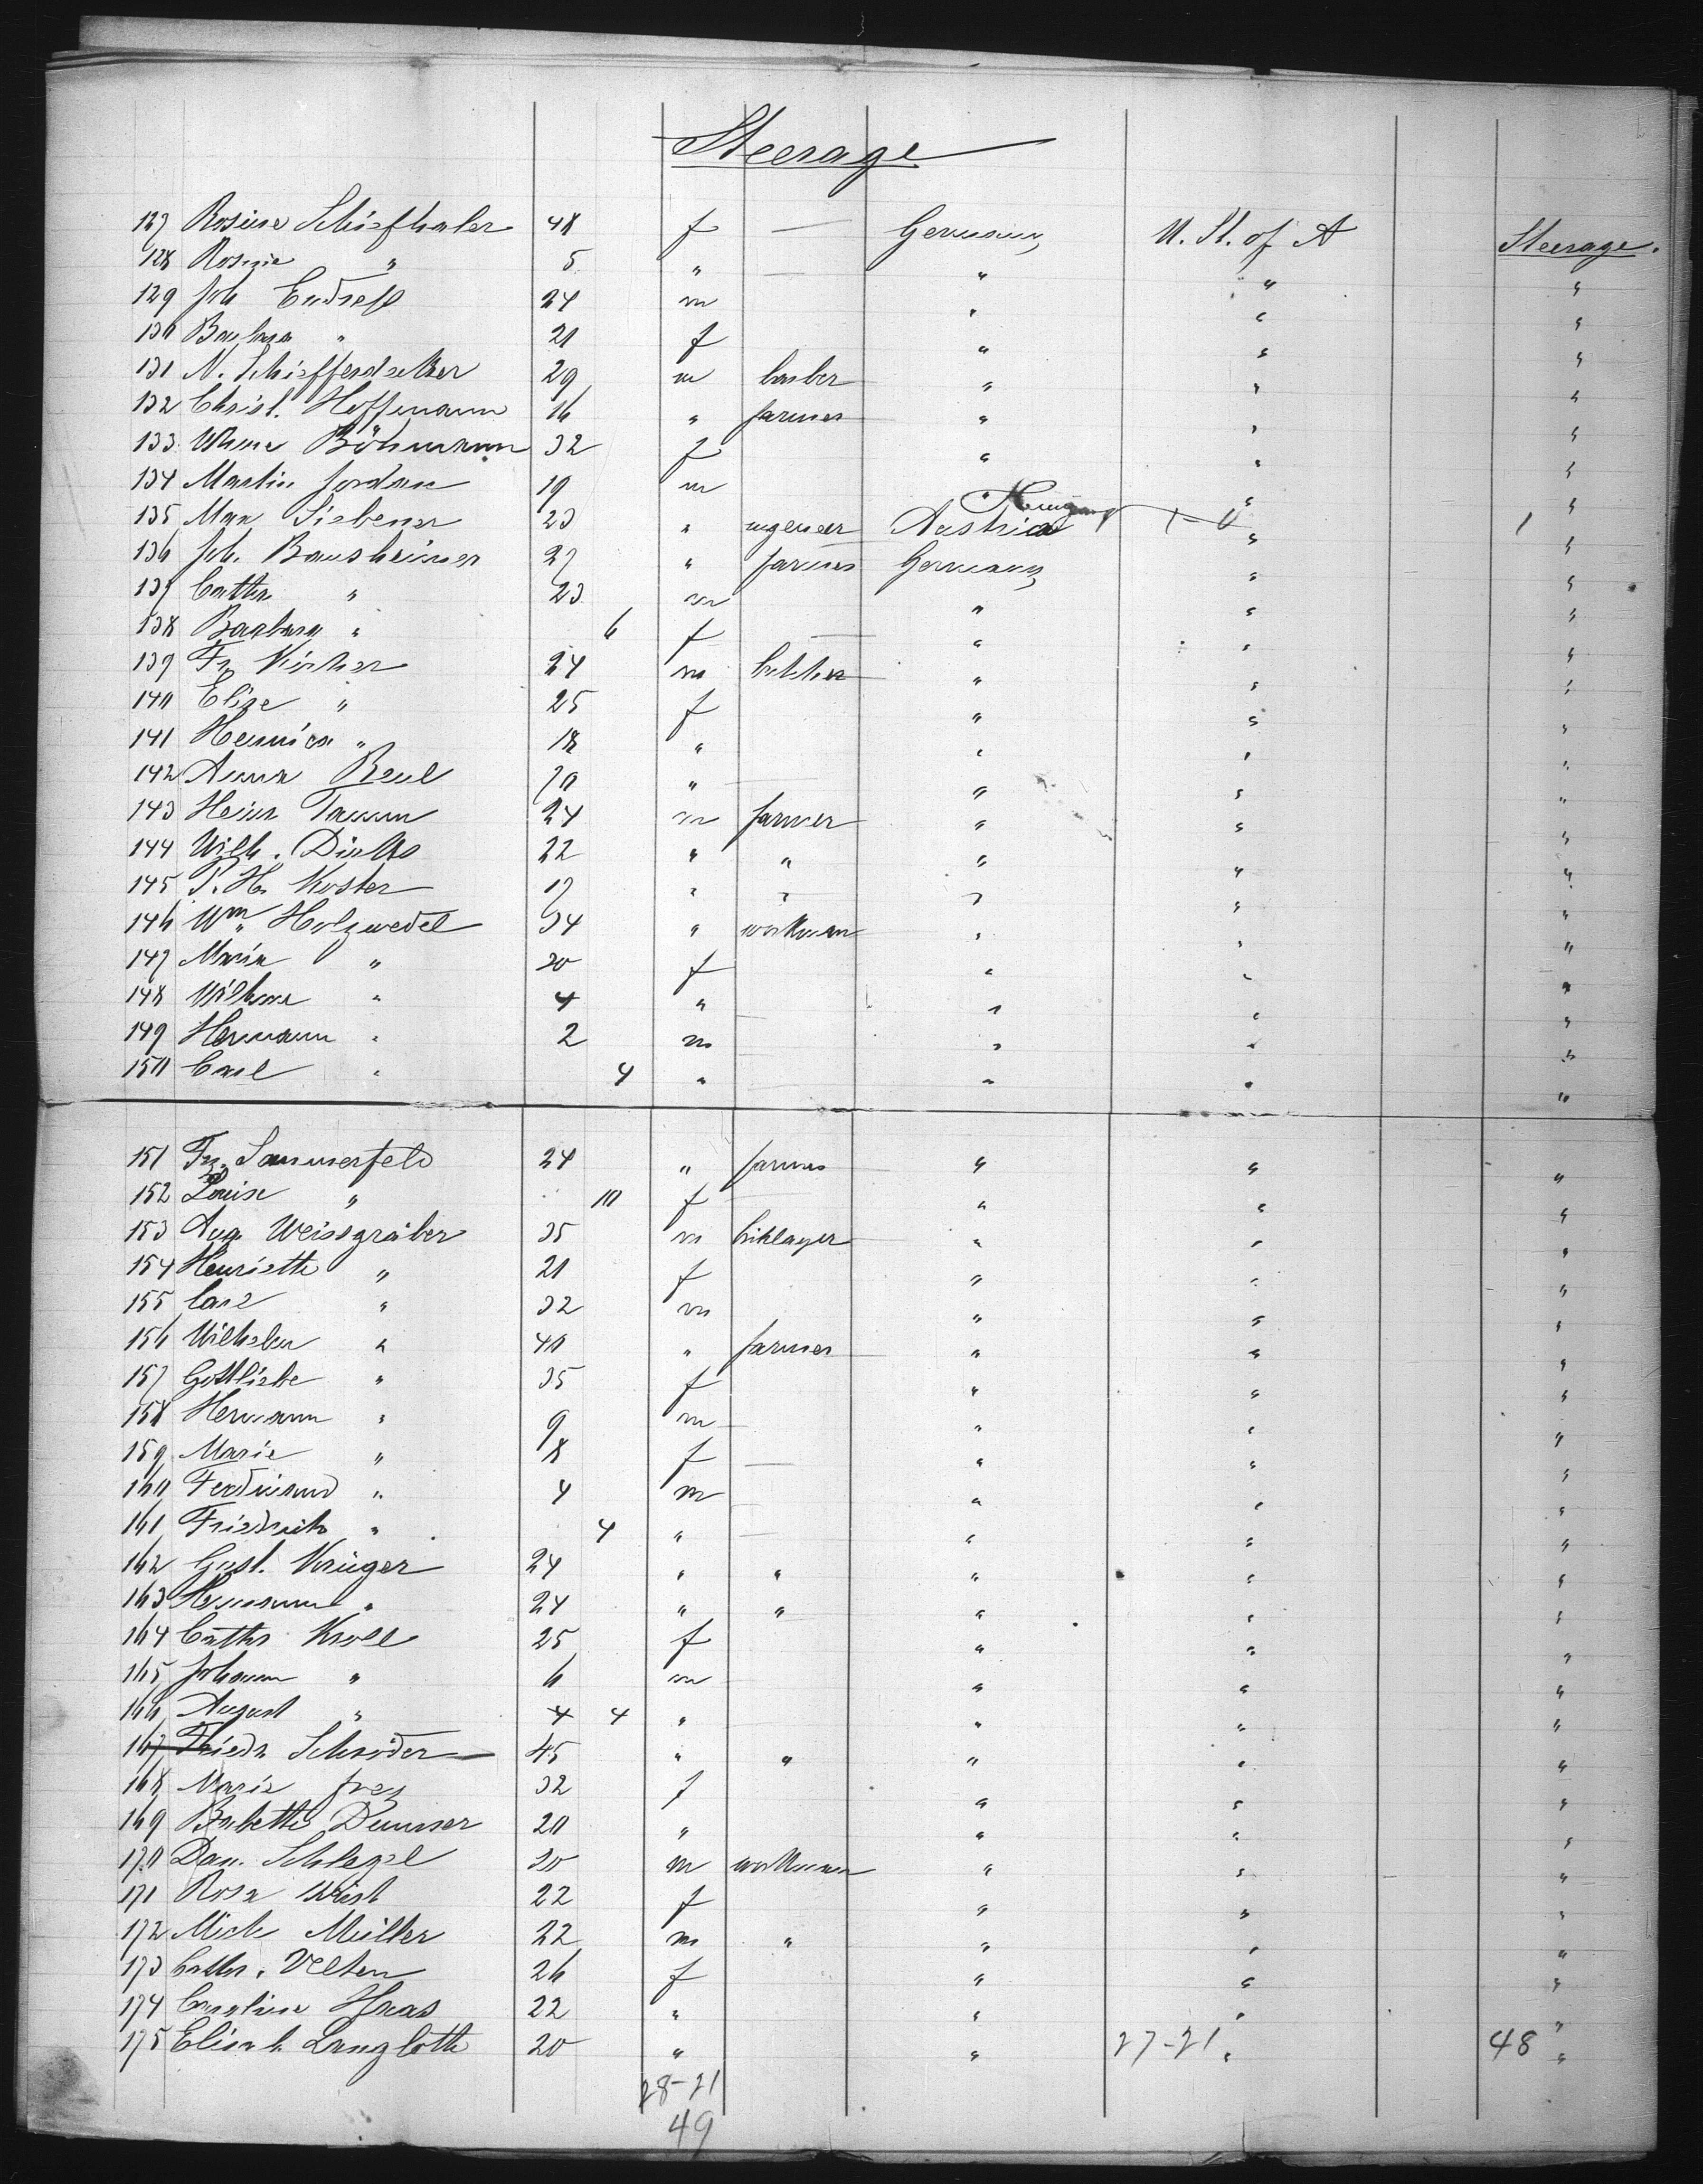 Steerage
127 Rosine Schiefthaler 48 f — Germany U. St. of A Steerage.
128 Rosine " 5 " — " " "
129 Joh Endreß 24 m " " "
130 Barbara " 21 f " " "
131 N. Schifferdecker 29 m barber " " "
132 Christ. Hoffmann 16 " farmer " " "
133 Whme Böhmann 32 f " " "
134 Martin Jordan 19 m " " "
Hungary
135 Max Siebener 23 " ingeneer Austria " 1 "
136 Joh. Bausheimer 27 " farmer Germany " "
137 Cathr " 23 m " " "
138 Barbara " 6 f — " " "
139 Fr. Kircher 24 m butcher " " "
140 Elise " 25 f " " "
141 Henrica " 18 " " " "
142 Anna Beul 70 " — " " "
143 Heinr Tamm 24 m farmer " " "
144 Wilh. Dirks 22 " " " " "
145 P. H. Koster 17 " " " " "
146 Wm Holzwedel 34 " workman " " "
147 Maria " 30 f " " "
148 Wilhme " 4 " — " " "
149 Hermann " 2 m — " " "
150 Carl " 4 " — " " "
151 Fr. Sommerfeld 24 " farmer " " "
152 Louise " 10 f — " " "
153 Aug Weissgräber 35 m briklayer " " "
154 Henriette " 21 f " " "
155 Carl " 32 m " " "
156 Wilhelm " 40 " farmer " " "
157 Gottliebe " 35 f — " " "
158 Hermann " 9 m — " " "
159 Marie " 8 f — " " "
160 Ferdinand " 4 m — " " "
161 Friedrich " 4 " — " " "
162 Gust. Krüger 24 " " " " "
163 Hermann " 24 " " " " "
164 Cathr Kroll 25 f " " "
165 Johann " 6 m " " "
166 August " 4 4 " " " "
167 Friedr Schröder 45 " " " " "
168 Marie Frey 32 f " " "
169 Babette Dummer 20 " " " "
170 Dan. Schlegel 30 m workman " " "
171 Rosa Wüst 22 f " " "
172 Mich Müller 22 m " " " "
173 Cathr. Velten 26 f " " "
174 Caroline Haas 22 " " " "
175 Elisab. Langlotth 20 " " 27-21 " 48 "
28-21
49